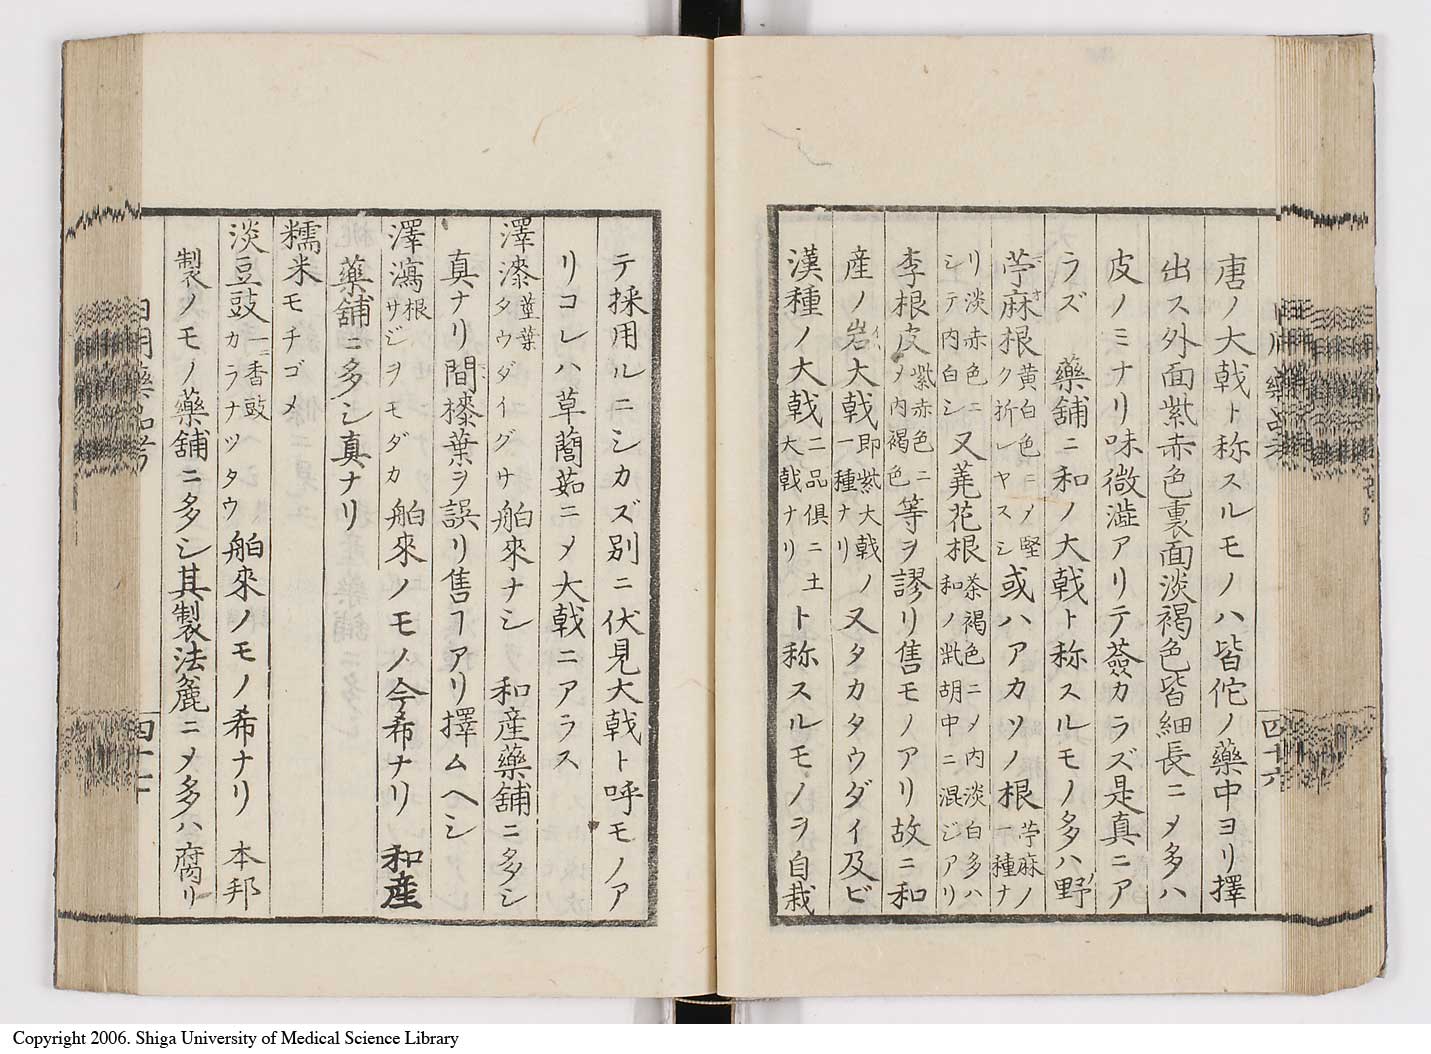 唐ノ大戟ト称スルモノハ皆佗ノ藥中ヨリ擇
出ス外面紫赤色裏面淡褐色皆細長ニ〆多ハ
皮ノミナリ味微澁アリテ薟カラズ是真ニア
ラズ 藥舖ニ和ノ大戟ト称スルモノ多ハ野
苧麻根黄白色ニ〆堅ク折レヤスシ或ハアカソノ根苧麻ノ一種ナ
リ淡赤色ニシテ内白シ又蕘花根茶褐色ニ〆内淡白多ハ和ノ茈胡中ニ混ジアリ
李根皮紫赤色ニ〆内褐色等ヲ謬リ售モノアリ故ニ和
産ノ岩大戟即紫大戟ノ一種ナリ又タカタウダイ及ビ
漢種ノ大戟二品俱ニ大戟ナリ土ト称スルモノヲ自栽
四十六
テ採用ルニシカズ別ニ伏見大戟ト呼モノア
リコレハ草䕡茹ニ〆大戟ニアラス
澤漆莖葉 タウダイグサ 舶來ナシ 和産藥舖ニ多シ
真ナリ間㯃葉ヲ誤リ售ヿアリ擇ムヘシ
澤瀉根 サジヲモダカ 舶來ノモノ今希ナリ 和産
藥舖ニ多シ真ナリ
糯米モチゴメ
淡豆豉一香豉 カラナツタウ 舶來ノモノ希ナリ 本邦
製ノモノ藥舖ニ多シ其製法麁ニ〆多ハ腐リ
日用藥品考
四十七
Copyright 2006. Shiga University of Medical Science Library